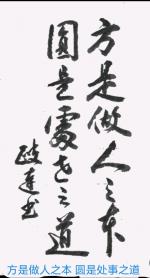 方是做人之本
圆是處世之道
政連书
方是做人之本 圆是处事之道